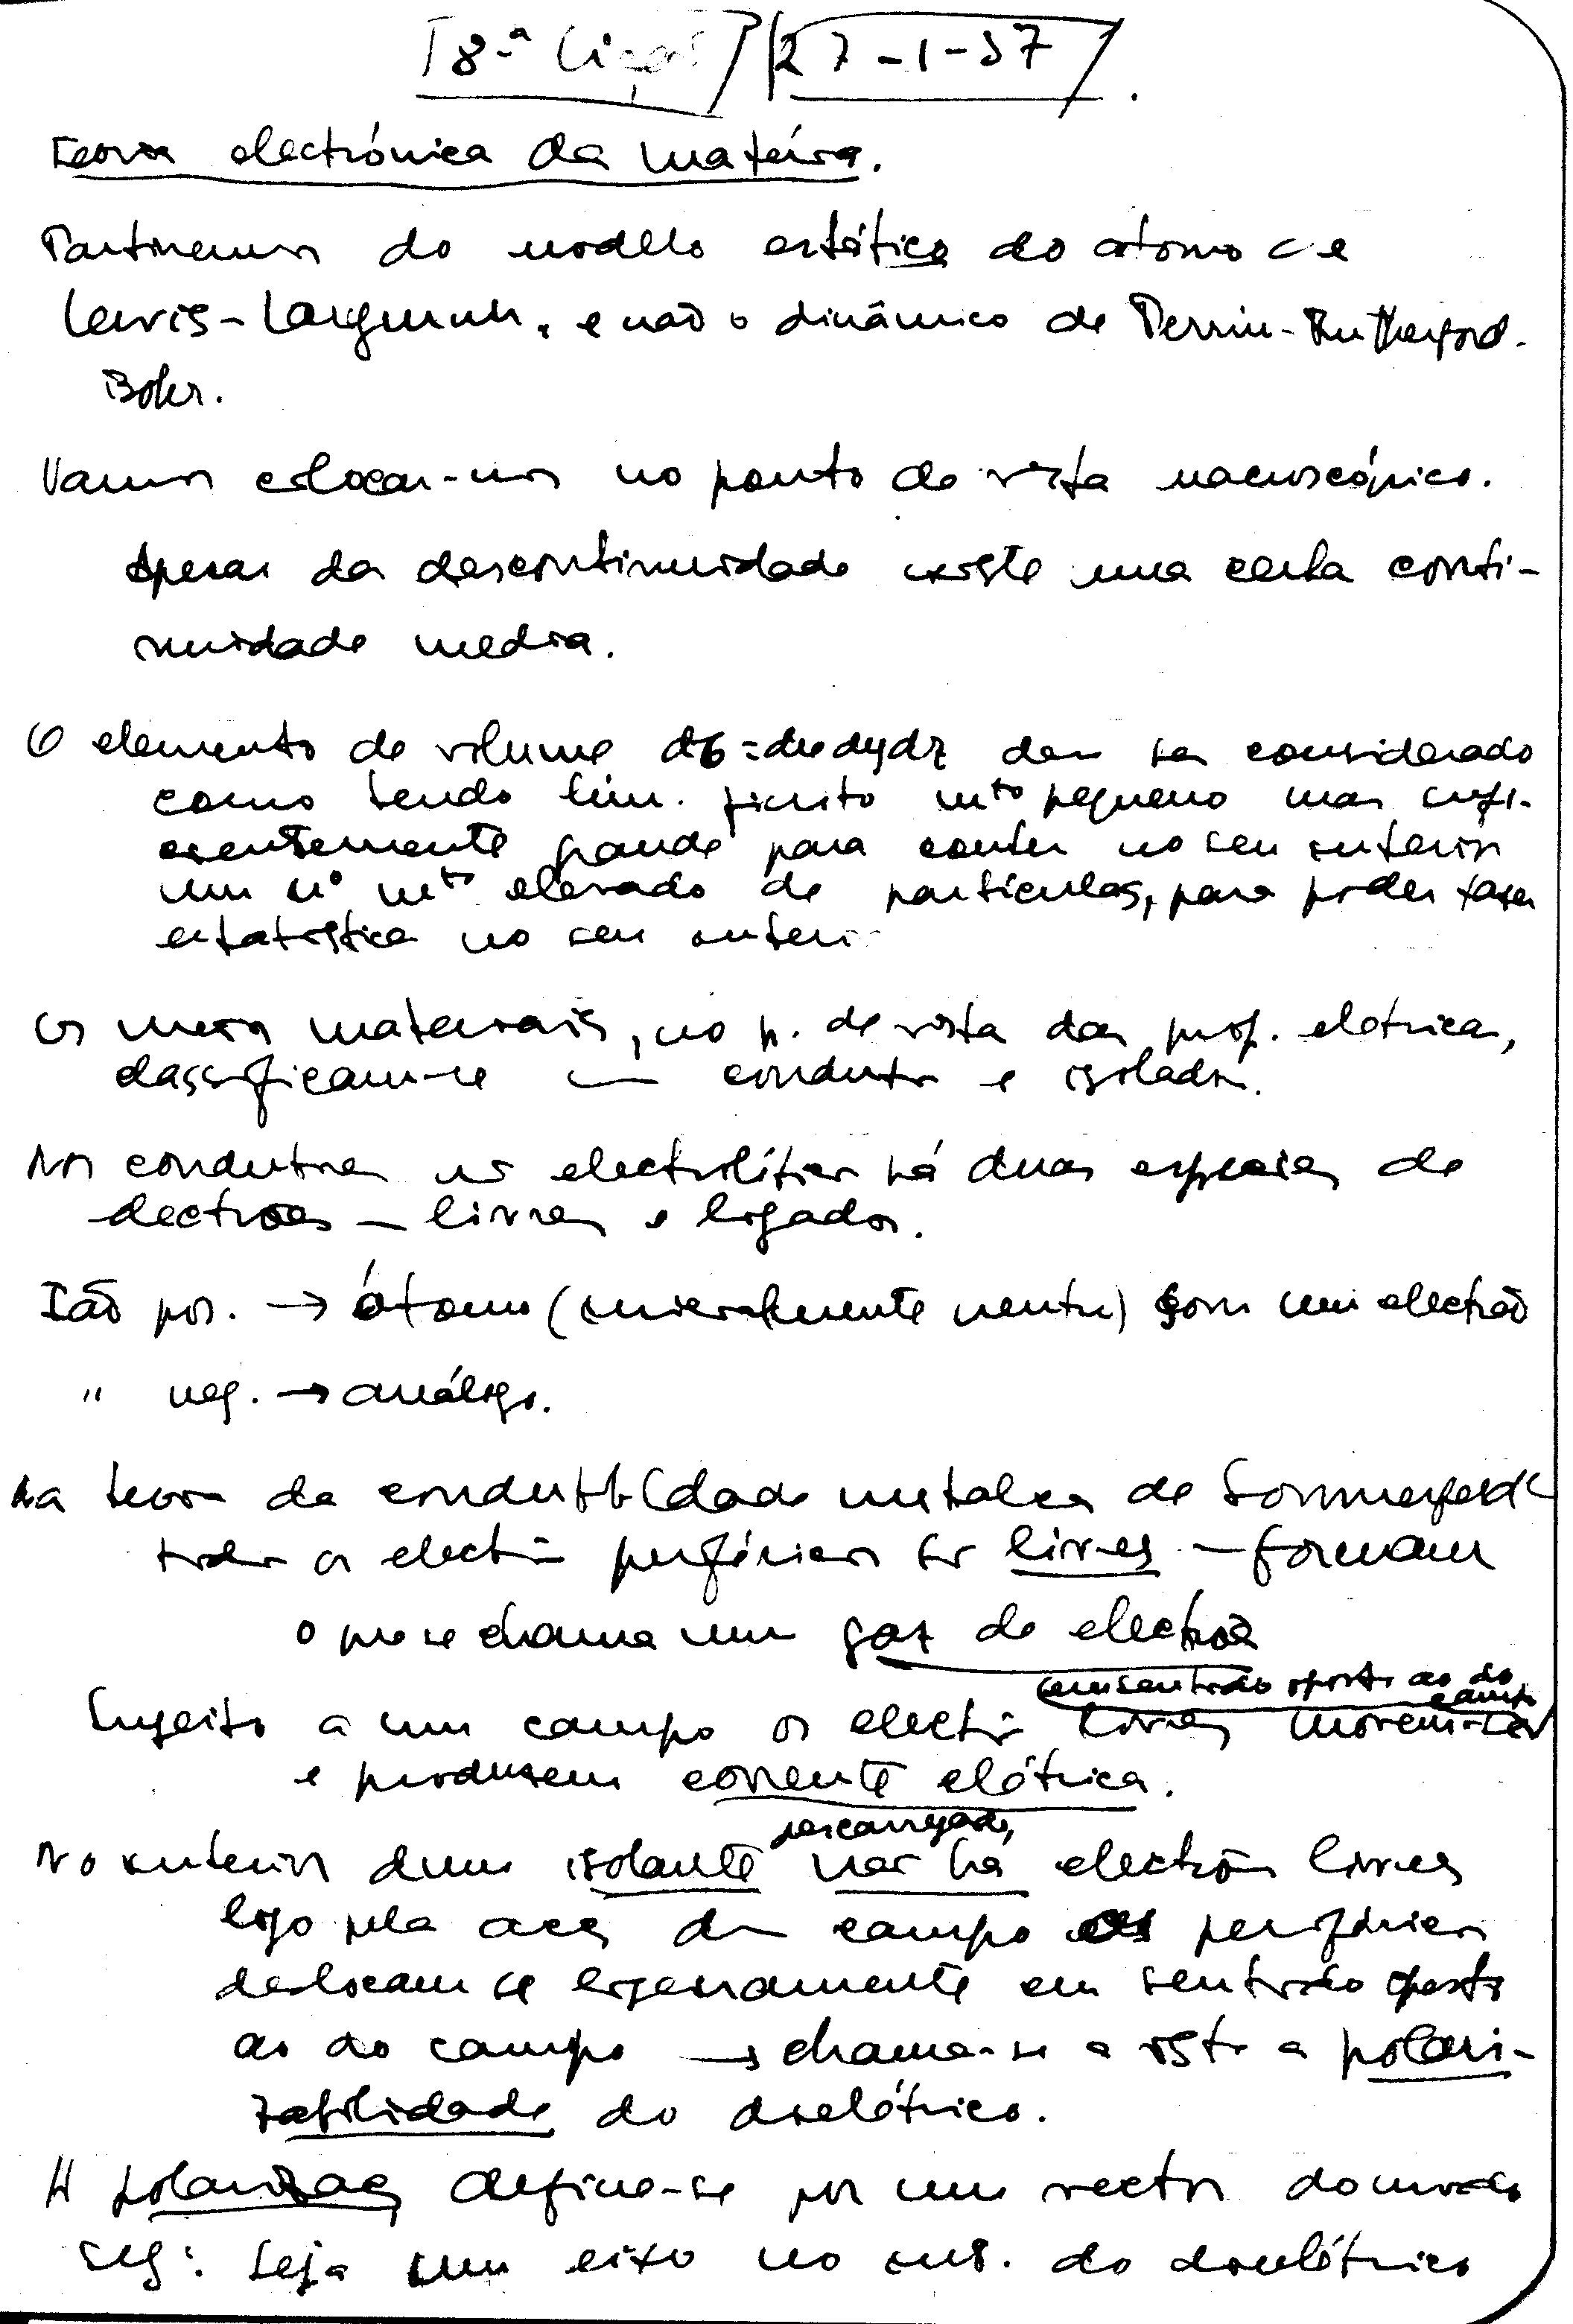 18.ª Lição 27-1-37.
Teoria electrónica da matéria.
Partiremos do modelo estático do atomo de
Lewis-Langmuir, e não o dinâmico de Perrin-Rutherford-
Bohr.
Vamos colocar-nos no ponto de vista macroscópico.
Apesar da descontinuidade existe uma certa conti-
nuidade media.
O elemento de volume dζ=dxdydz deve ser considerado
como tendo lim. finito mto pequeno mas sufi-
cientemente grande para conter no seu interior
um nº mto elevado de particulas, para poder fazer
estatistica no seu interior
Os meios materiais, no p. de vista das prop. elétricas,
classificam-se em condutor e isolador.
Nos condutores não electrolíticos há duas especies de
electrões — livres e ligados.
Ião pos. → átomo (inicialmente neutro) sem um electrão
" neg. → análogo.
Na teoria da condutibilidade metalica de Sommerfeld
todos os electrões periféricos são livres — formam
o que se chama um gaz de electrões
em sentido oposto ao do campo
Sugeito a um campo os electrões livres movem-se
e produzem corrente elétrica.
descarregado,
No interior dum isolante não há electrões livres
logo pela acção dum campo os periféricos
deslocam se ligeiramente em sentido oposto
ao do campo → chama-se a isto a polari-
zabilidade do dielétrico.
A polarização define-se por um vector do modo
seg: Seja um eixo no int. do dielétrico